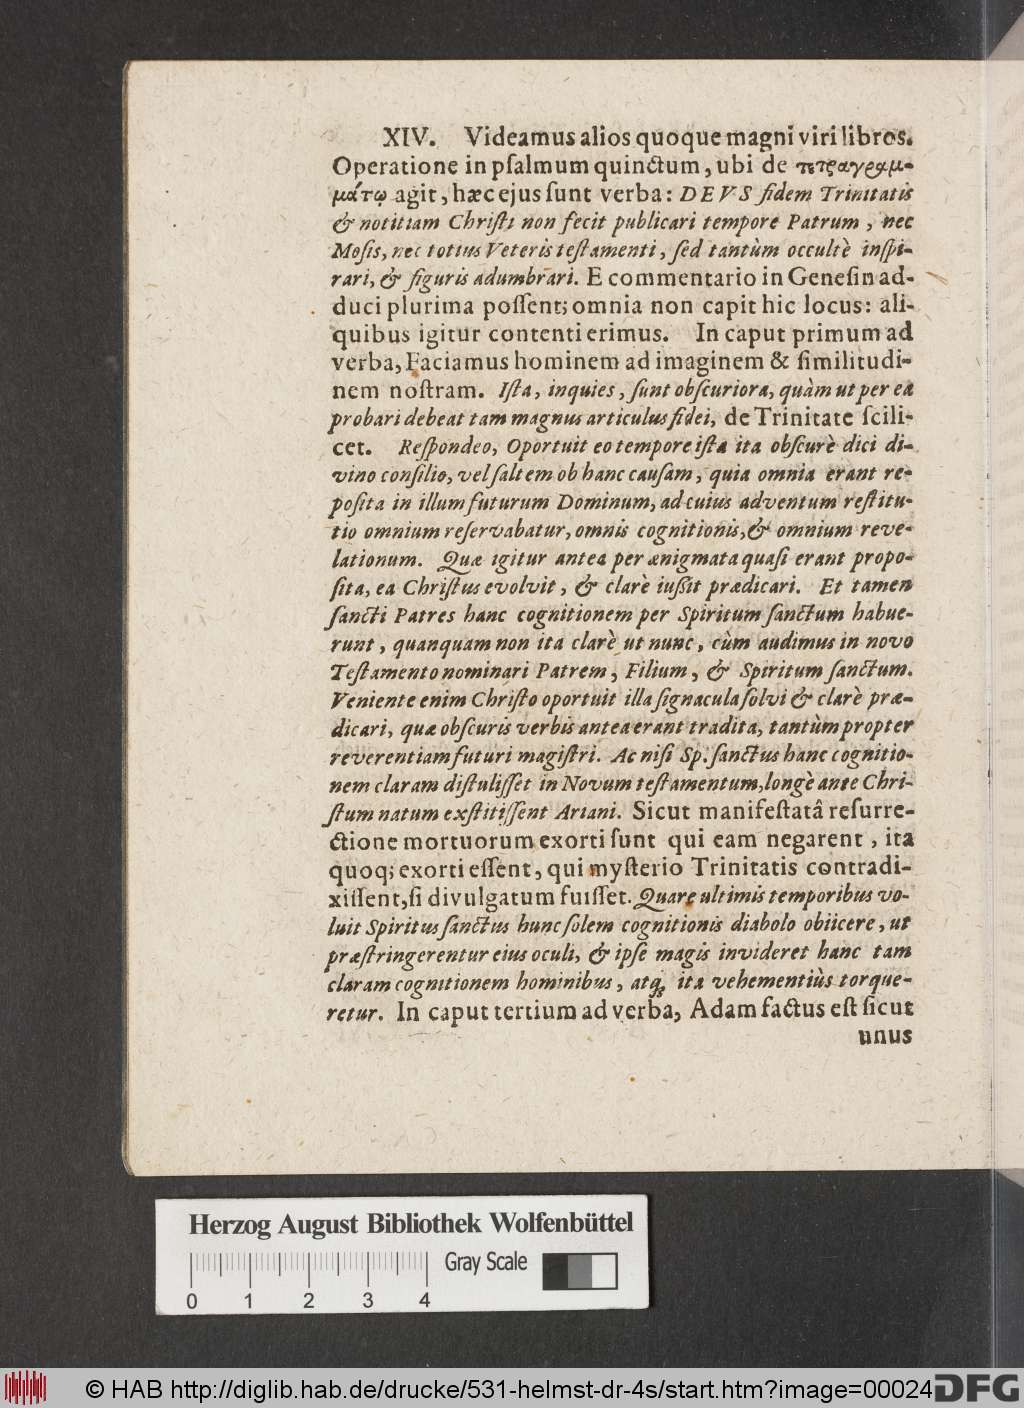 XIV. Videamus alios quoque magni viri libros.
Operatione in psalmum quinctum, ubi de τετραγραμ-
μάτῳ agit, hæc ejus sunt verba: DEVS fidem Trinitatis
& notitiam Christi non fecit publicari tempore Patrum, nec
Mosis, nec totius Veteris testamenti, sed tantùm occultè inspi-
rari, & figuris adumbrari. E commentario in Genesin ad-
duci plurima possent; omnia non capit hic locus: ali-
quibus igitur contenti erimus. In caput primum ad
verba, Faciamus hominem ad imaginem & similitudi-
nem nostram. Ista, inquies, sunt obscuriora, quàm ut per ea
probari debeat tam magnus articulus fidei, de Trinitate scili-
cet. Respondeo, Oportuit eo tempore ista ita obscurè dici di-
vino consilio, vel saltem ob hanc causam, quia omnia erant re-
posita in illum futurum Dominum, ad cuius adventum restitu-
tio omnium reservabatur, omnis cognitionis, & omnium reve-
lationum. Quæ igitur antea per ænigmata quasi erant propo-
sita, ea Christus evolvit, & clarè iussit prædicari. Et tamen
sancti Patres hanc cognitionem per Spiritum sanctum habue-
runt, quanquam non ita clarè ut nunc, cùm audimus in novo
Testamento nominari Patrem, Filium, & Spiritum sanctum.
Veniente enim Christo oportuit illa signacula solvi & clarè præ-
dicari, quæ obscuris verbis antea erant tradita, tantùm propter
reverentiam futuri magistri. Ac nisi Sp. sanctus hanc cognitio-
nem claram distulisset in Novum testamentum, longè ante Chri-
stum natum exstitissent Ariani. Sicut manifestatâ resurre-
ctione mortuorum exorti sunt qui eam negarent, ita
quoq; exorti essent, qui mysterio Trinitatis contradi-
xissent, si divulgatum fuisset. Quare ultimis temporibus vo-
luit Spiritus sanctus hunc solem cognitionis diabolo obiicere, ut
præstringerentur eius oculi, & ipse magis invideret hanc tam
claram cognitionem hominibus, atq; ita vehementiùs torque-
retur. In caput tertium ad verba, Adam factus est sicut
unus
Herzog August Bibliothek Wolfenbüttel
Gray Scale
0 1 2 3 4
© HAB http://diglib.hab.de/drucke/531-helmst-dr-4s/start.htm?image=00024
DFG